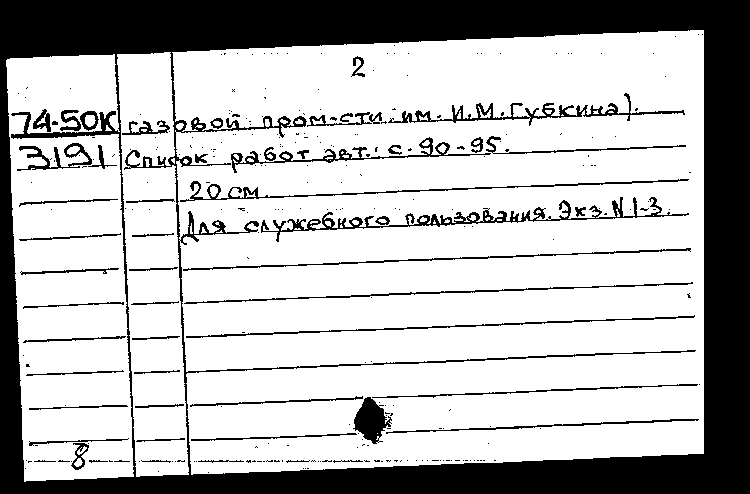 2
74-50К газовой пром-сти им. И.М.Губкина).
3191 Список работ авт.: с. 90-95.
20 см.
Для служебного пользования. Экз. N 1-3.
8